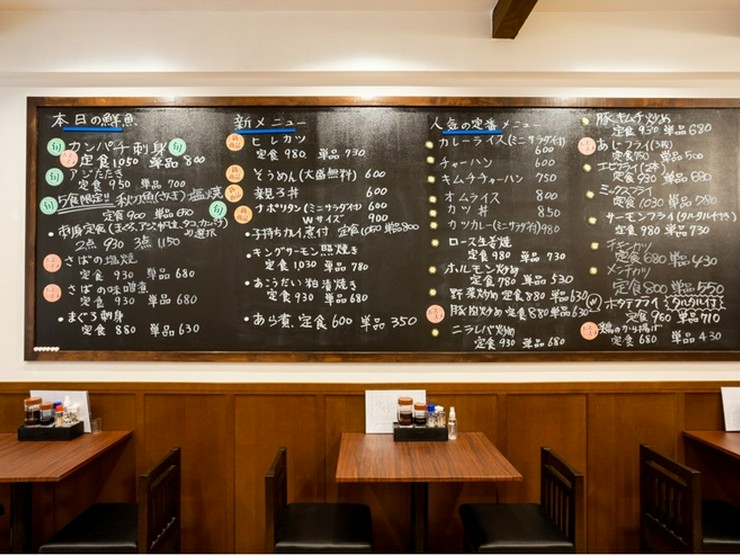 本日の鮮魚
旬 カンパチ刺身 旬
定食1050 単品800
旬 アジたたき
定食 950 単品 700
旬 5食限定!! 秋刀魚(さんま)塩焼 旬
定食900 単品
・刺身定食
2点 930 3点 1150
さばの塩焼
定食 930 単品 680
さばの味噌煮
定食 930 単品 680
・まぐろ刺身
定食 880 単品 630
新メニュー
ヒレカツ
定食 980 単品 730
そうめん(大盛無料) 600
親子丼 600
ナポリタン(ミニサラダ付) 600
Wサイズ 900
・子持ちカレイ煮付 定食1050 単品800
・キングサーモン照焼き
定食 1030 単品 780
・あこうだい粕漬焼き
定食 930 単品 680
・あら煮 定食 600 単品 350
人気の定番メニュー
カレーライス(ミニサラダ付)
600
チャーハン 600
キムチチャーハン 750
オムライス 800
カツ丼 850
カツカレー(ミニサラダ付)980
ロース生姜焼
定食 980 単品 730
ホルモン炒め
定食 780 単品 530
野菜炒め 定食 880 単品 630
豚肉炒め 定食 880 単品 630
ニラレバ炒め
定食 930 単品 680
豚キムチ炒め
定食 930 単品 680
あじフライ(3枚)
定食750 単品 500
エビフライ(2本)
定食 930 単品 680
ミックスフライ
定食 1030 単品 780
サーモンフライ(タルタル付き)
定食 980 単品 730
チキンカツ
定食 680 単品 430
メンチカツ
定食 800 単品 550
ポテトフライ タルタル付
定食 960 単品 710
鶏のから揚げ
定食 680 単品 430